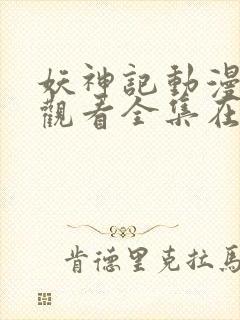 妖神記動漫
觀看全集在
肯德里克拉馬